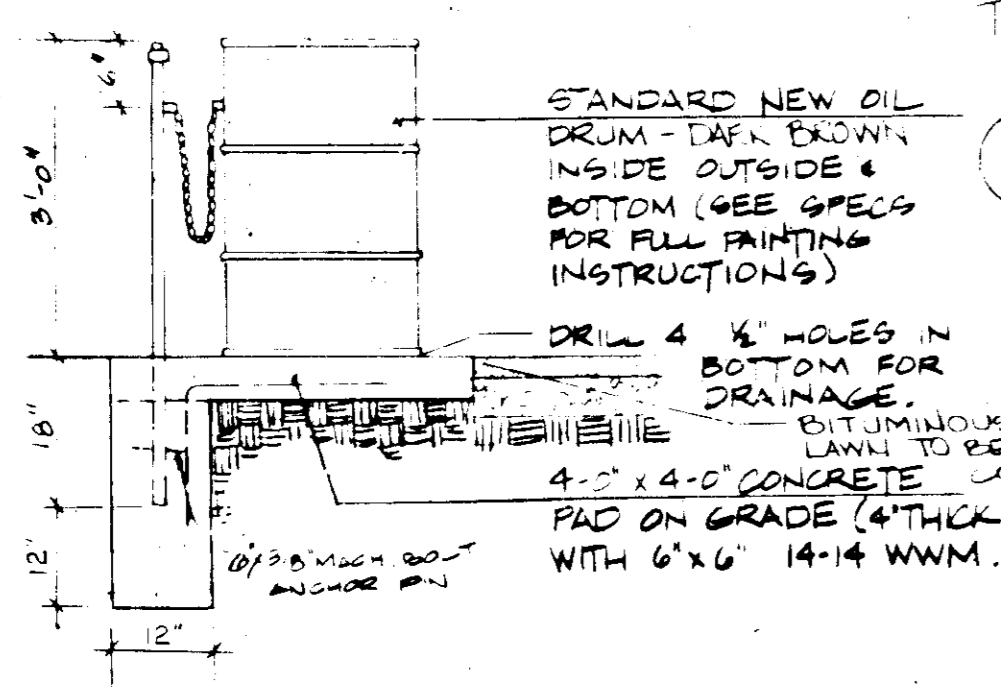 6"
3'-0"
18"
12"
12"
STANDARD NEW OIL
DRUM - DARK BROWN
INSIDE OUTSIDE &
BOTTOM (SEE SPECS
FOR FULL PAINTING
INSTRUCTIONS)
DRILL 4 ½" HOLES IN
BOTTOM FOR
DRAINAGE.
BITUMINOUS
LAWN TO BE
4-0" x 4-0" CONCRETE
PAD ON GRADE (4" THICK
WITH 6" x 6" 14-14 WWM.
MACH. BOLT
ANCHOR PIN